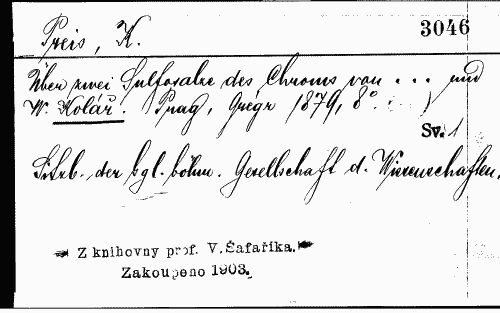 Preis, K.
3046
Über zwei Sulfosalze des Chroms von ... und
W. Kolář. Prag, Grégr 1879, 8°.
Sv. 1
Sitzb. der kgl. böhm. Gesellschaft d. Wissenschaften.
Z knihovny prof. V. Šafaříka.
Zakoupeno 1903.